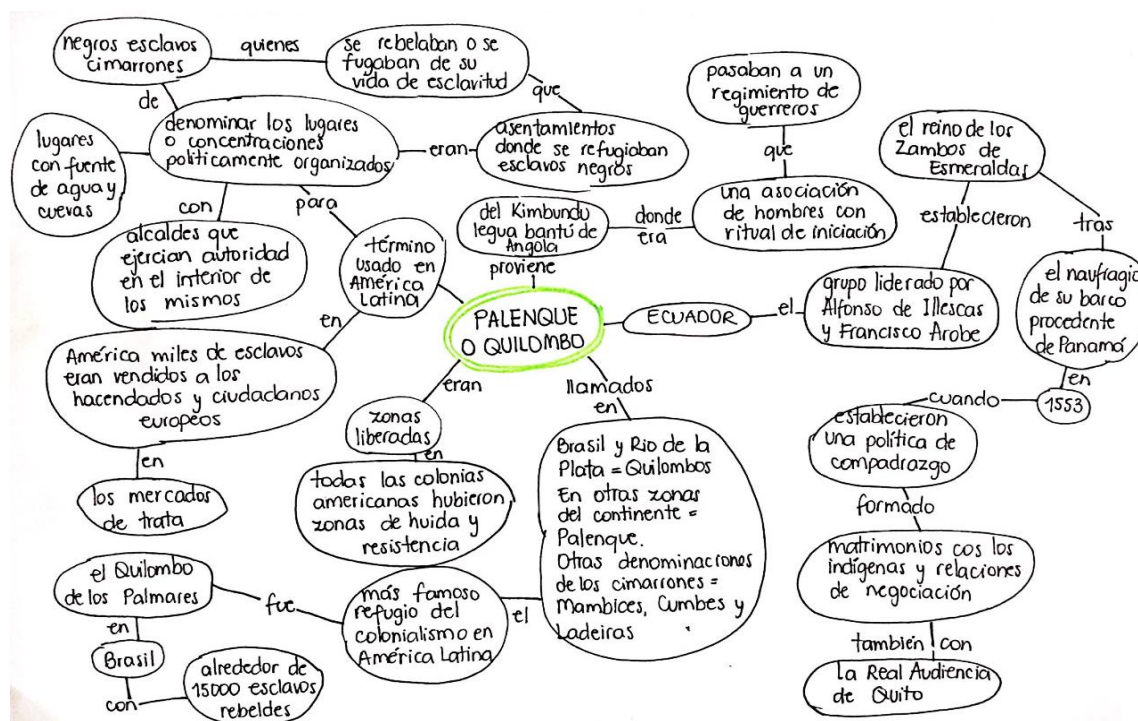 negros esclavos
cimarrones
quienes
se rebelaban o se
fugaban de su
vida de esclavitud
que
asentamientos
donde se refugiaban
esclavos negros
eran
de
denominar los lugares
o concentraciones
políticamente organizados
lugares
con fuente
de agua y
cuevas
con
alcaldes que
ejercian autoridad
en el interior de
los mismos
para
término
usado en
América
Latina
en
América miles de esclavos
eran vendidos a los
hacendados y ciudadanos
europeos
en
los mercados
de trata
pasaban a un
regimiento de
guerreros
que
una asociación
de hombres con
ritual de iniciación
donde
era
del Kimbundu
legua bantú de
Angola
proviene
PALENQUE
O QUILOMBO
ECUADOR
el
grupo liderado por
Alfonso de Illescas
y Francisco Arobe
establecieron
el reino de los
Zambos de
Esmeraldas
tras
el naufragio
de su barco
procedente
de Panamá
en
1553
cuando
establecieron
una política de
compadrazgo
formado
matrimonios cos los
indígenas y relaciones
de negociación
también con
la Real Audiencia
de Quito
eran
zonas
liberadas
en
todas las colonias
americanas hubieron
zonas de huida y
resistencia
llamados
en
Brasil y Rio de la
Plata = Quilombos
En otras zonas
del continente =
Palenque.
Otras denominaciones
de los cimarrones =
Mambices, Cumbes y
Ladeiras
el
más famoso
refugio del
colonialismo en
América Latina
fue
el Quilombo
de los Palmares
en
Brasil
con
alrededor de
15000 esclavos
rebeldes